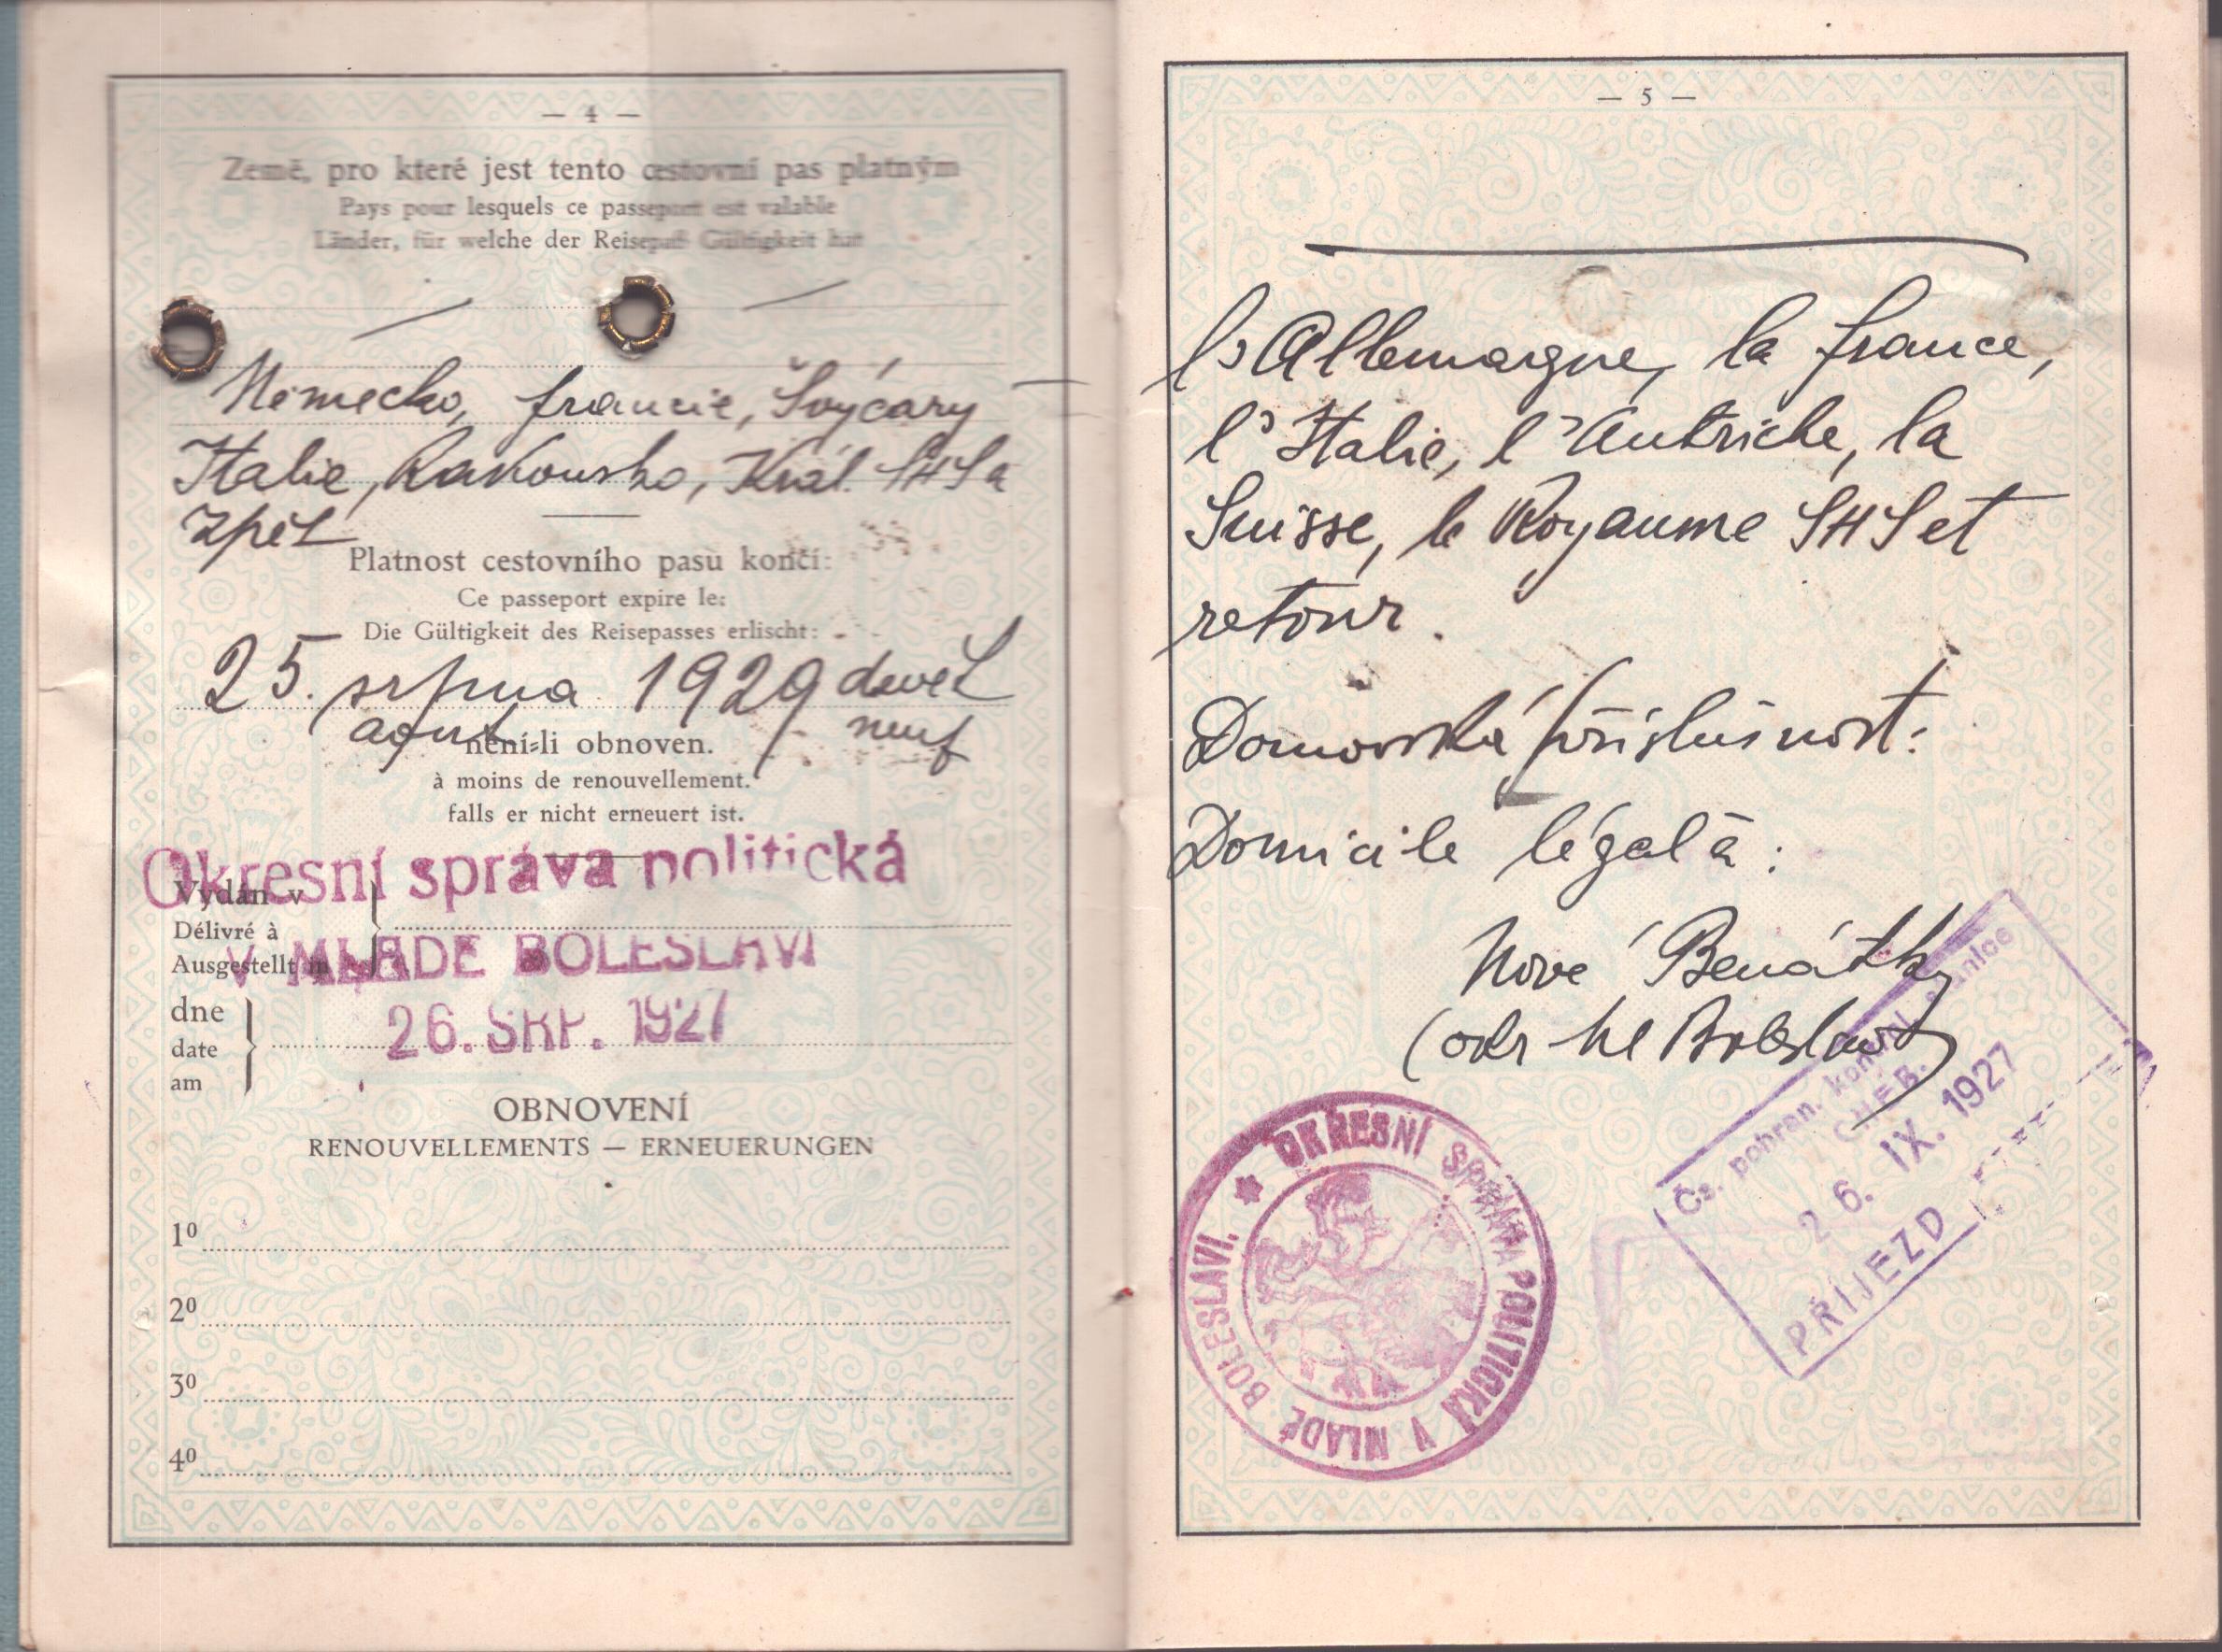 — 4 —
Země, pro které jest tento cestovní pas platným
Pays pour lesquels ce passeport est valable
Länder, für welche der Reisepaß Gültigkeit hat
Německo, francie, Švýcary
Italie, Rakousko, Král. SHS a
zpět
Platnost cestovního pasu končí:
Ce passeport expire le:
Die Gültigkeit des Reisepasses erlischt:
25. srpna 1929 devět
août neuf
není-li obnoven.
à moins de renouvellement.
falls er nicht erneuert ist.
Okresní správa politická
Vydán v
Délivré à
V MLADÉ BOLESLAVI
Ausgestellt in
dne
date
am
26. SRP. 1927
OBNOVENÍ
RENOUVELLEMENTS — ERNEUERUNGEN
1⁰
2⁰
3⁰
4⁰
— 5 —
l'Allemagne, la france,
l'Italie, l'Autriche, la
Suisse, le Royaume SHS et
retour.
Domovská příslušnost:
Domicile légal à:
Nové Benátky
(okr Ml Boleslav)
OKRESNÍ SPRÁVA POLITICKÁ V MLADÉ BOLESLAVI.
Čs. pohran.
CHEB.
26. IX. 1927
PŘÍJEZD